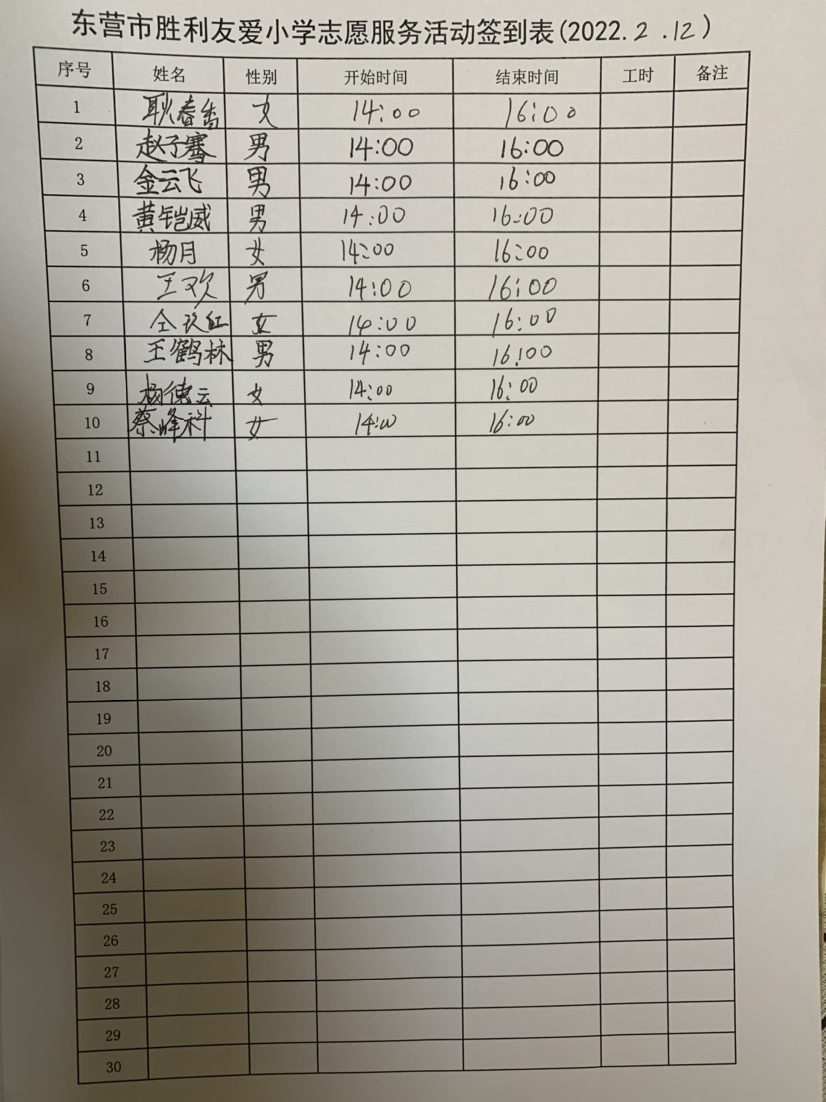 东营市胜利友爱小学志愿服务活动签到表(2022.2.12)
序号 姓名 性别 开始时间 结束时间 工时 备注
1 耿春雷 女 14:00 16:00
2 赵子骞 男 14:00 16:00
3 金云飞 男 14:00 16:00
4 黄铠威 男 14:00 16:00
5 杨月 女 14:00 16:00
6 王欢 男 14:00 16:00
7 女 14:00 16:00
8 王鹤林 男 14:00 16:00
9 杨德云 女 14:00 16:00
10 蔡峰科 女 14:00 16:00
11
12
13
14
15
16
17
18
19
20
21
22
23
24
25
26
27
28
29
30